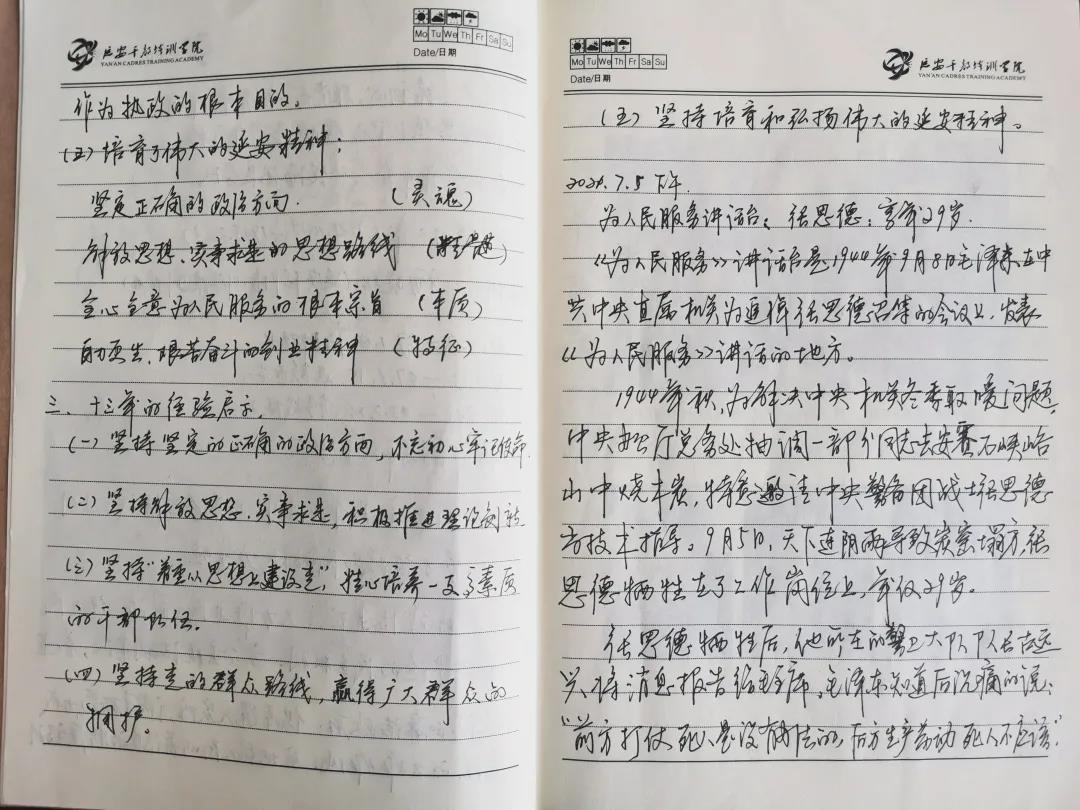 延安干部培训学院
YAN'AN CADRES TRAINING ACADEMY
Mo Tu We Th Fr Sa Su
Date/日期
作为执政的根本目的。
(五)培育了伟大的延安精神:
坚定正确的政治方向. (灵魂)
解放思想、实事求是的思想路线
全心全意为人民服务的根本宗旨 (本质)
自力更生、艰苦奋斗的创业精神 (特征)
三、十三年的经验启示.
(一)坚持坚定的正确的政治方向,不忘初心牢记使命
(二)坚持解放思想、实事求是,积极推进理论创新
(三)坚持"着重从思想上建设党",精心培养一支高素质
的干部队伍.
(四)坚持党的群众路线,赢得广大群众的
拥护。
Mo Tu We Th Fr Sa Su
Date/日期
延安干部培训学院
YAN'AN CADRES TRAINING ACADEMY
(五)坚持培育和弘扬伟大的延安精神。
7.5 下午.
为人民服务讲话台: 张思德:享年29岁.
《为人民服务》讲话台是1944年9月8日毛泽东在中
共中央直属机关为追悼张思德召集的会议上,发表
《为人民服务》讲话的地方。
1944年秋,为解决中央机关冬季取暖问题,
中央办公厅总务处抽调一部分同志去安塞石峡峪
山中烧木炭,特意邀请中央警备团战士张思德
技术指导。9月5日,天下连阴雨导致炭窑塌方,张
思德牺牲在了工作岗位上,年仅29岁。
张思德牺牲后,他所在的警卫大队队长古远
兴将消息报告给毛主席,毛泽东知道后沉痛的说:
"前方打仗死人是没有办法的,后方生产劳动死人不应该".